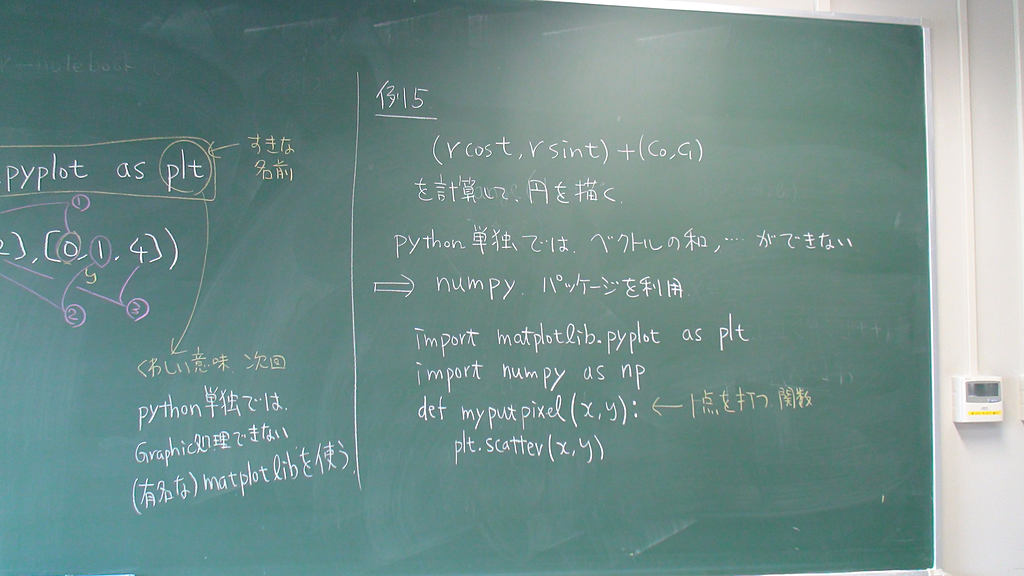 .pyplot as plt
すきな
名前
①
2],[0,1,4])
y
②
③
くわしい意味 次回
python単独では、
Graphic処理できない
(有名な)matplotlibを使う.
例15
(rcost, rsint)+(C0, C1)
を計算して、円を描く.
python単独では、ベクトルの和,…ができない
⇒ numpy パッケージを利用
import matplotlib.pyplot as plt
import numpy as np
def myputpixel(x,y): ← 1点を打つ 関数
plt.scatter(x,y)